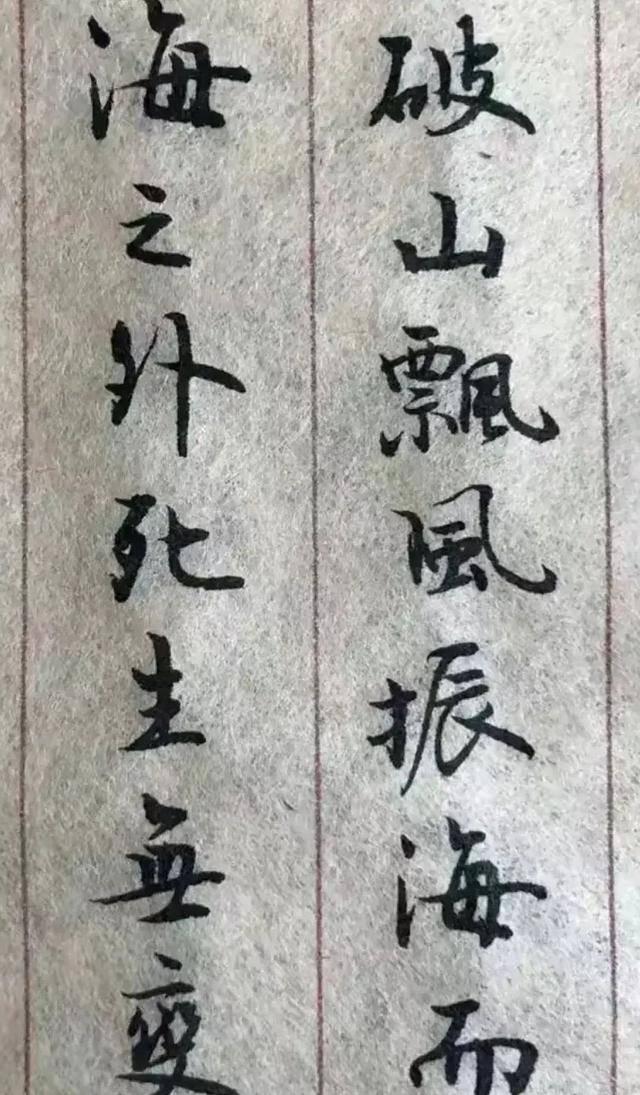 破山飄風振海而
海之外死生無變